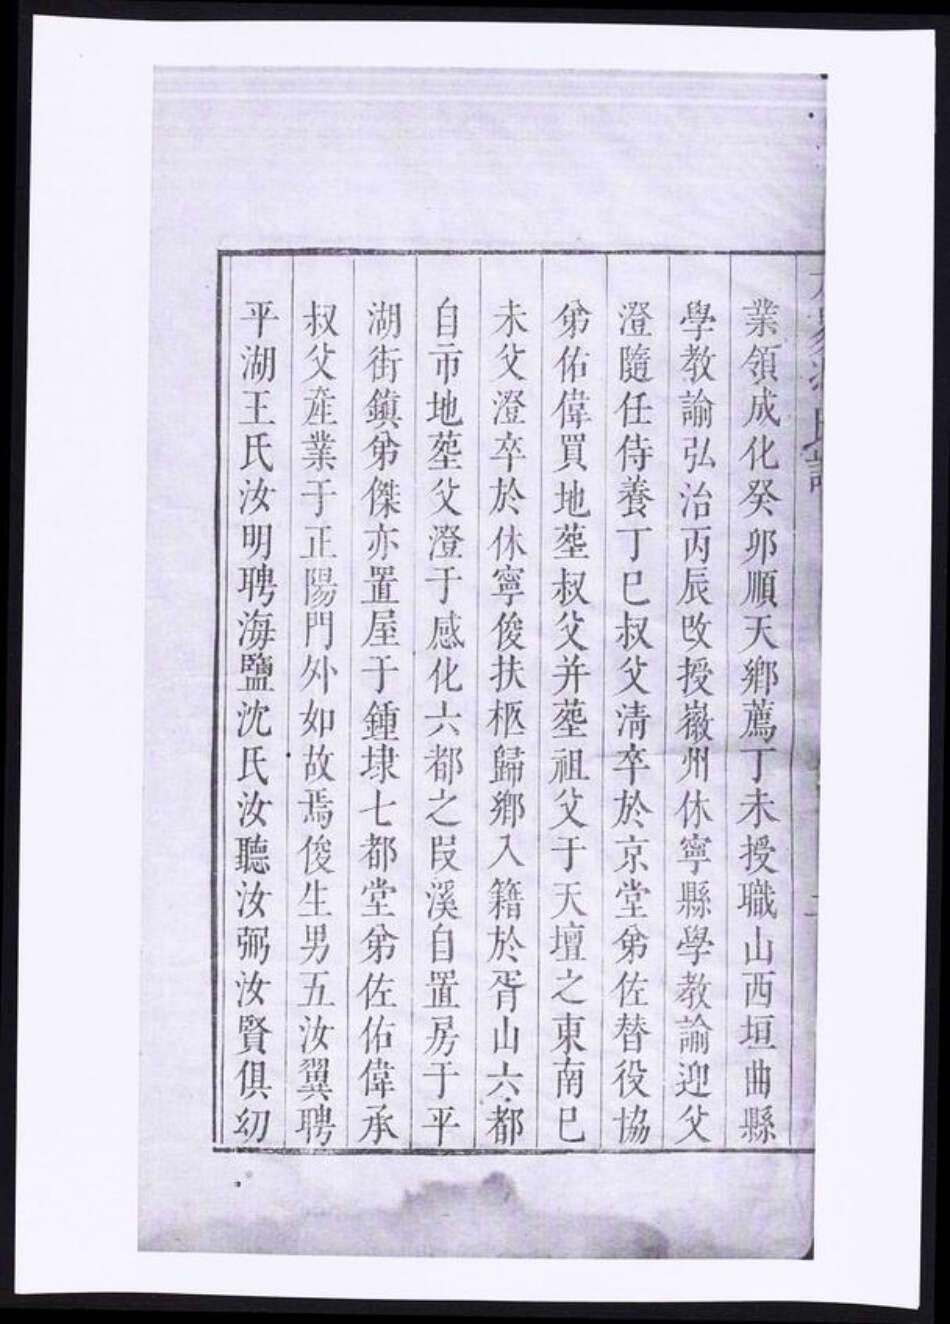 業領成化癸卯順天鄉薦丁未授職山西垣曲縣
學教諭弘治丙辰改授徽州休寧縣學教諭迎父
澄隨任侍養丁巳叔父清卒於京堂弟佐替役協
弟佑偉買地塟叔父并塟祖父于天壇之東南巳
未父澄卒於休寧俊扶柩歸鄉入籍於胥山六都
自市地塟父澄于感化六都之叚溪自置房于平
湖街鎮弟傑亦置屋于鍾埭七都堂弟佐佑偉承
叔父產業于正陽門外如故焉俊生男五汝翼聘
平湖王氏汝明聘海鹽沈氏汝聽汝弼汝賢俱幼